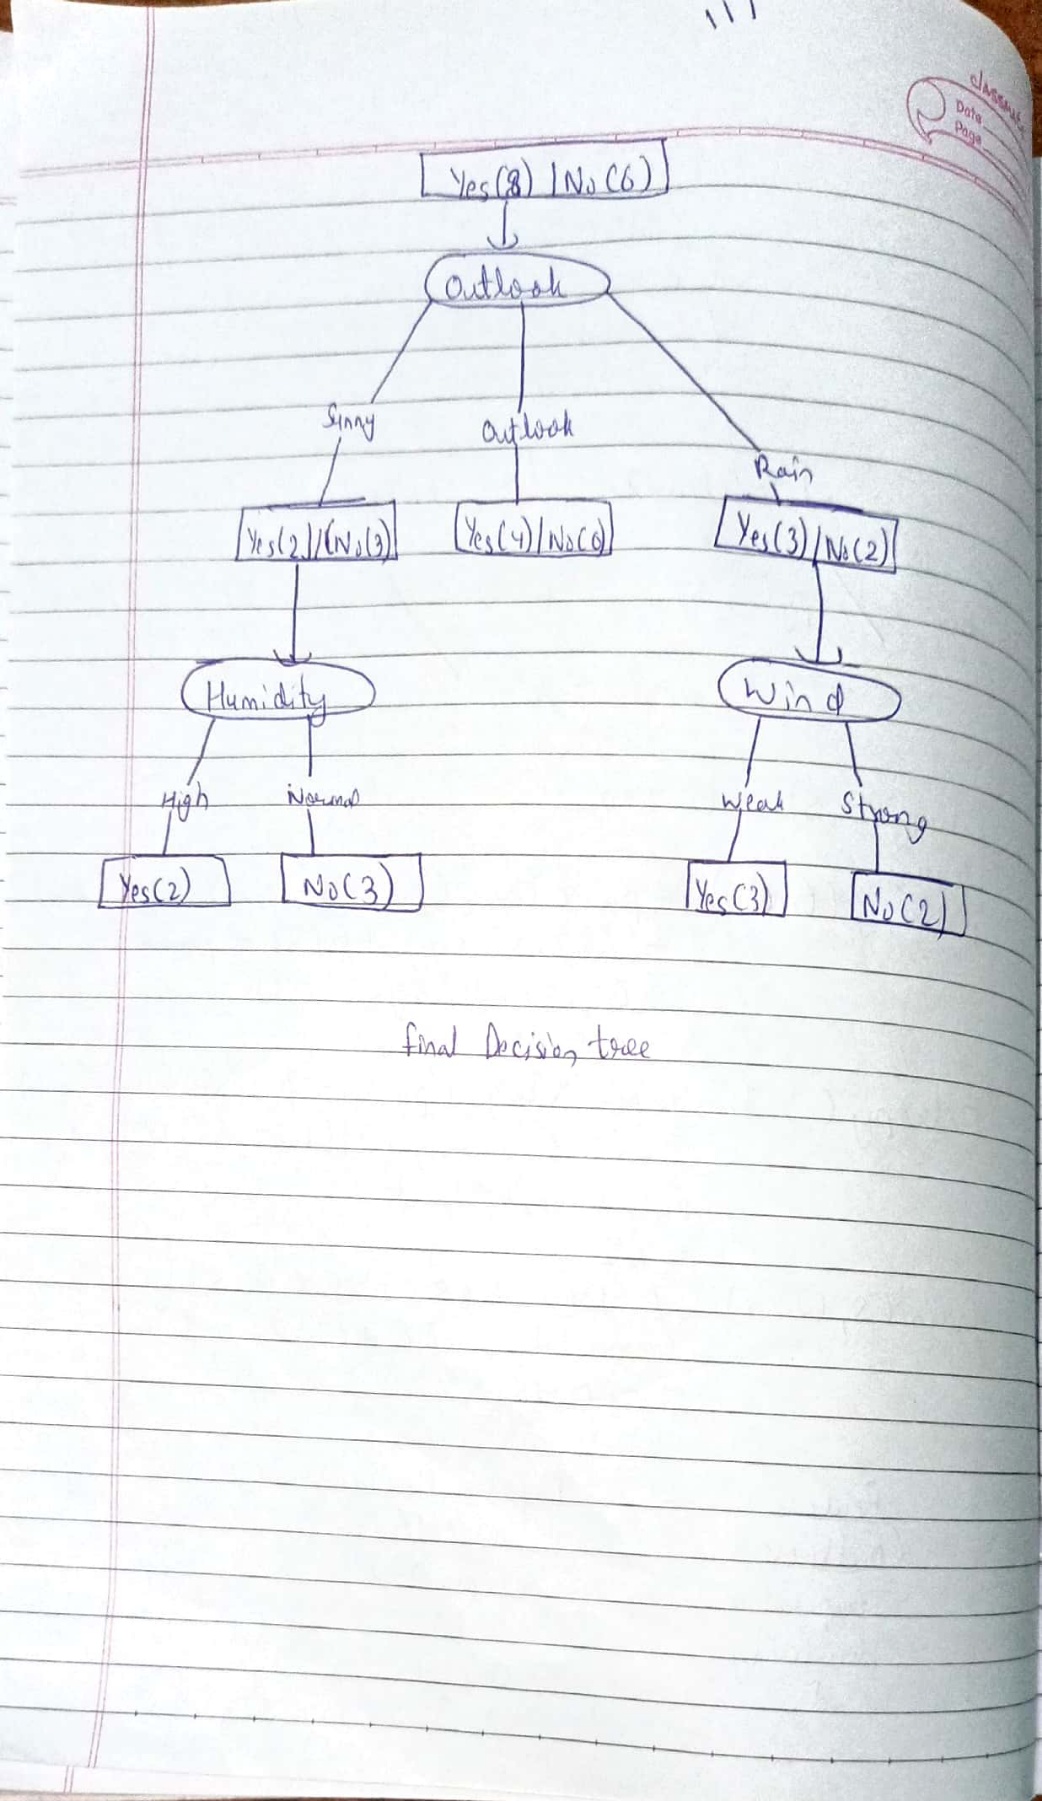 classmate
Date
Page
Yes(8) | No(6)
Outlook
Sunny Outlook Rain
Yes(2) | (No(3) Yes(4) | No(0) Yes(3) | No(2)
Humidity Wind
High Normal Weak Strong
Yes(2) No(3) Yes(3) No(2)
final Decision tree